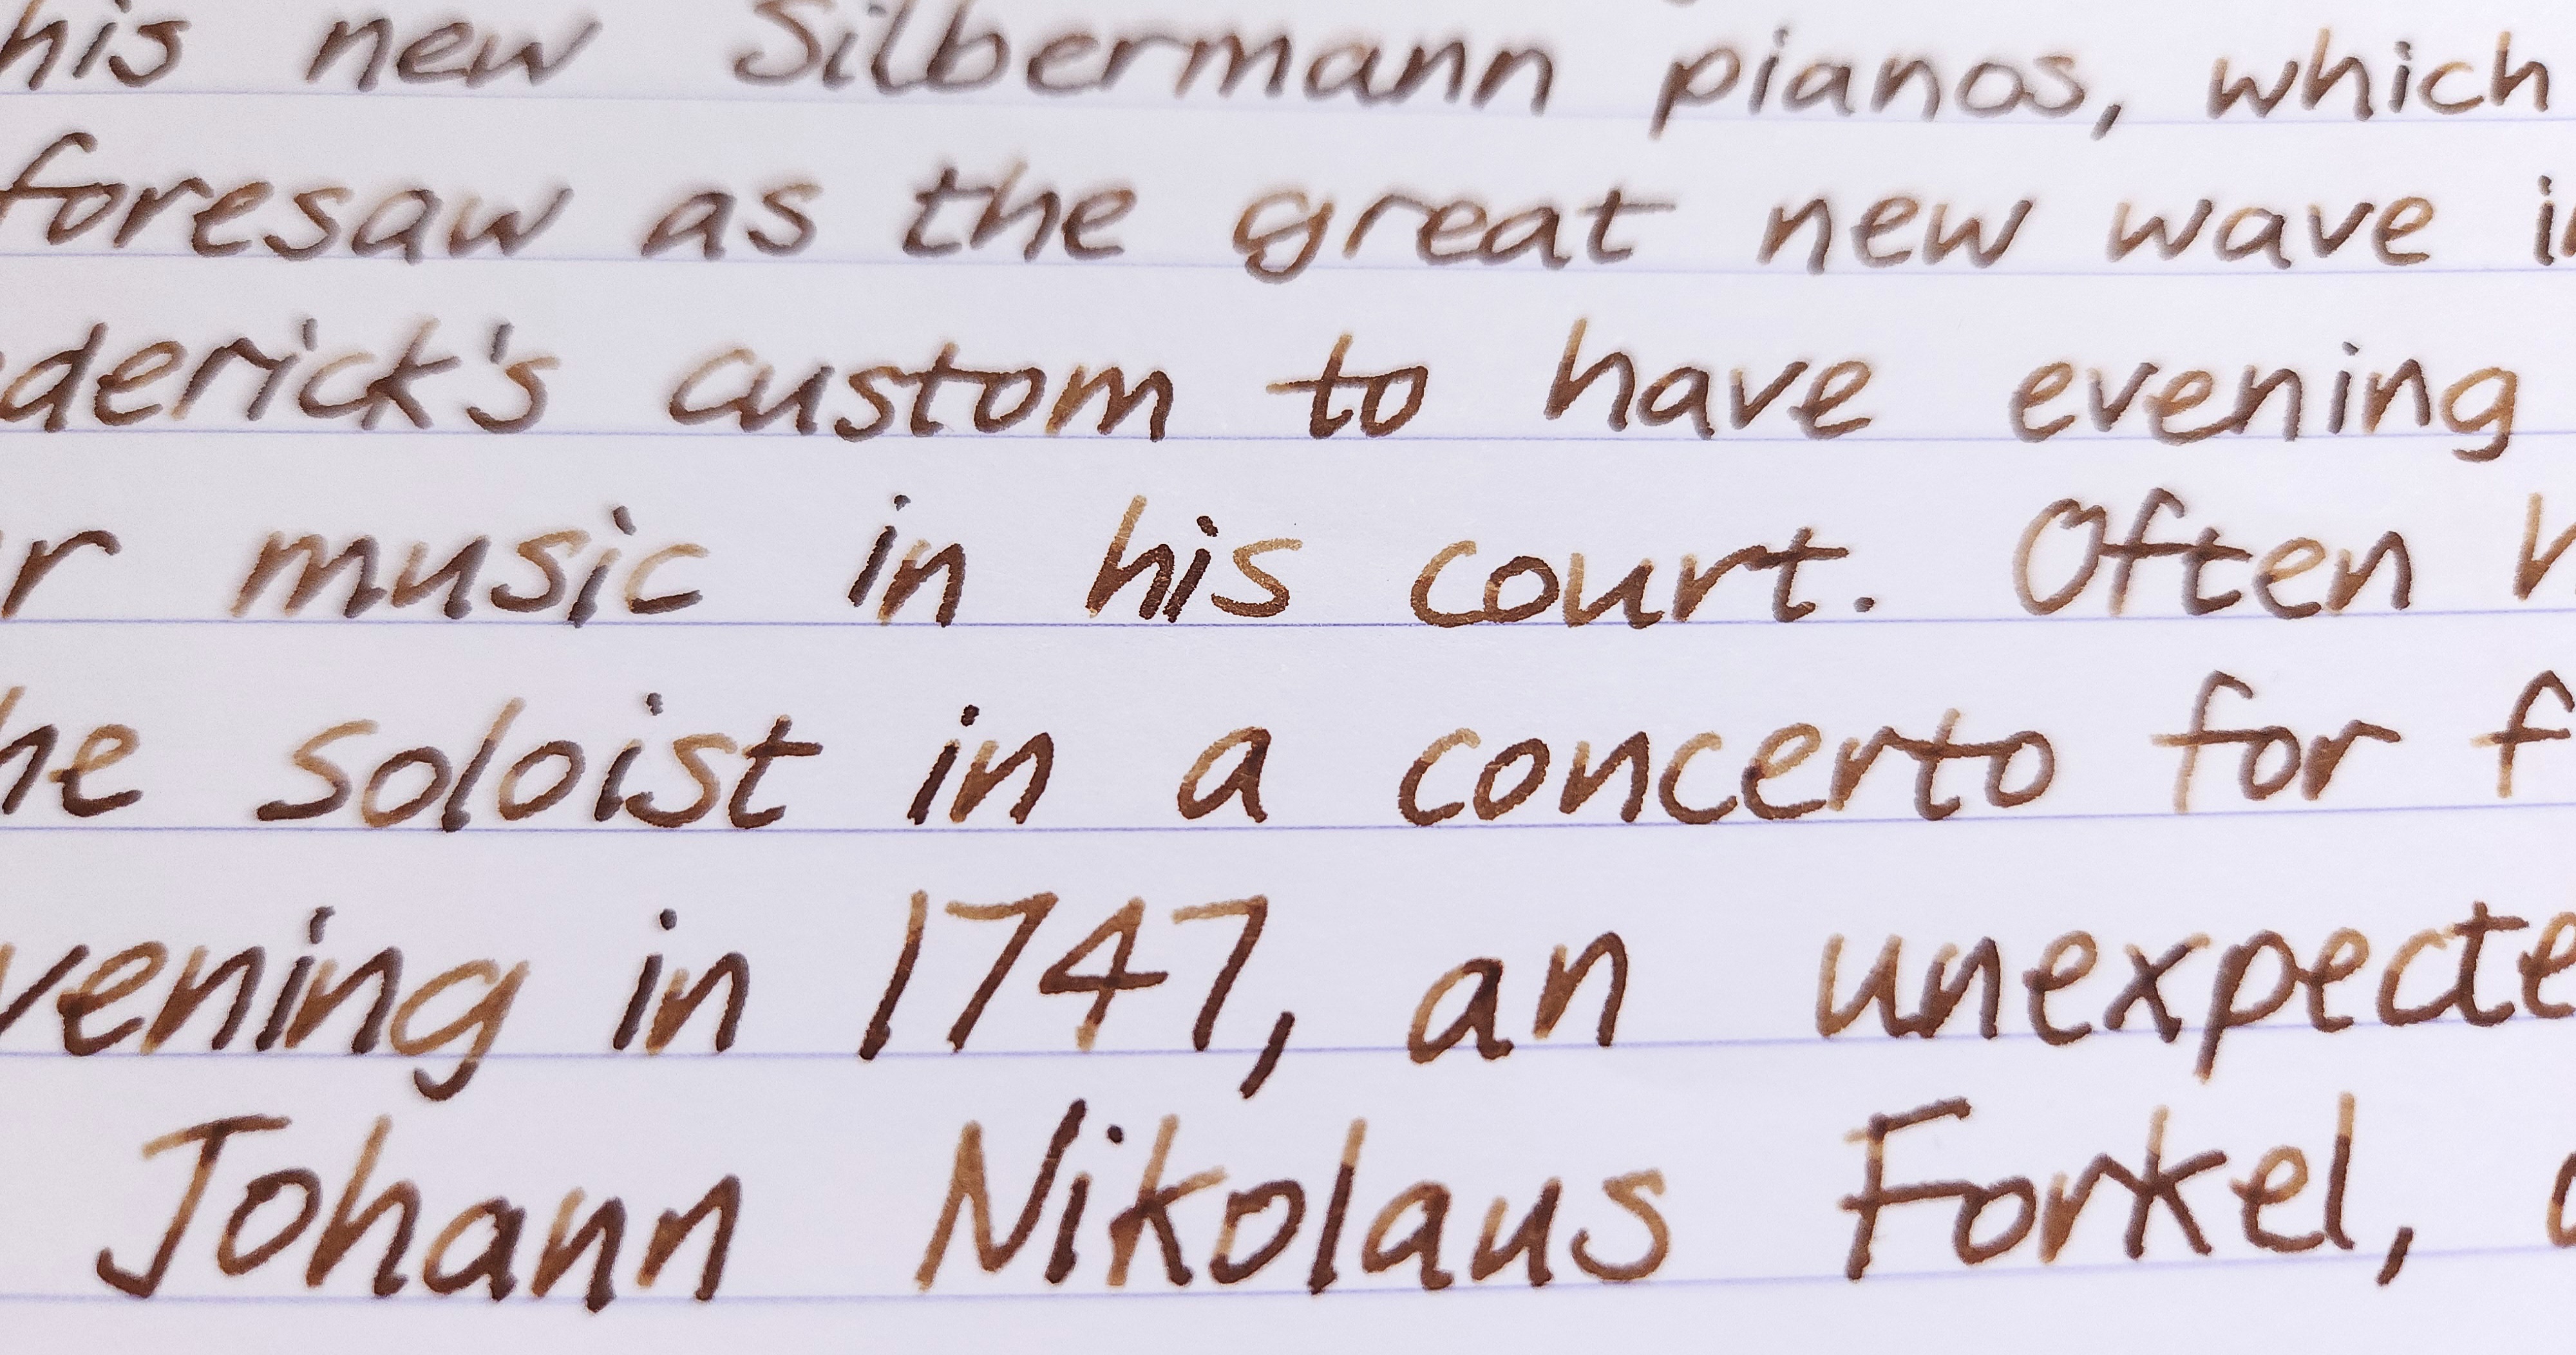 his new Silbermann pianos, which
foresaw as the great new wave in
derick's custom to have evening
r music in his court. Often h
he soloist in a concerto for f
vening in 1747, an unexpecte
Johann Nikolaus Forkel,